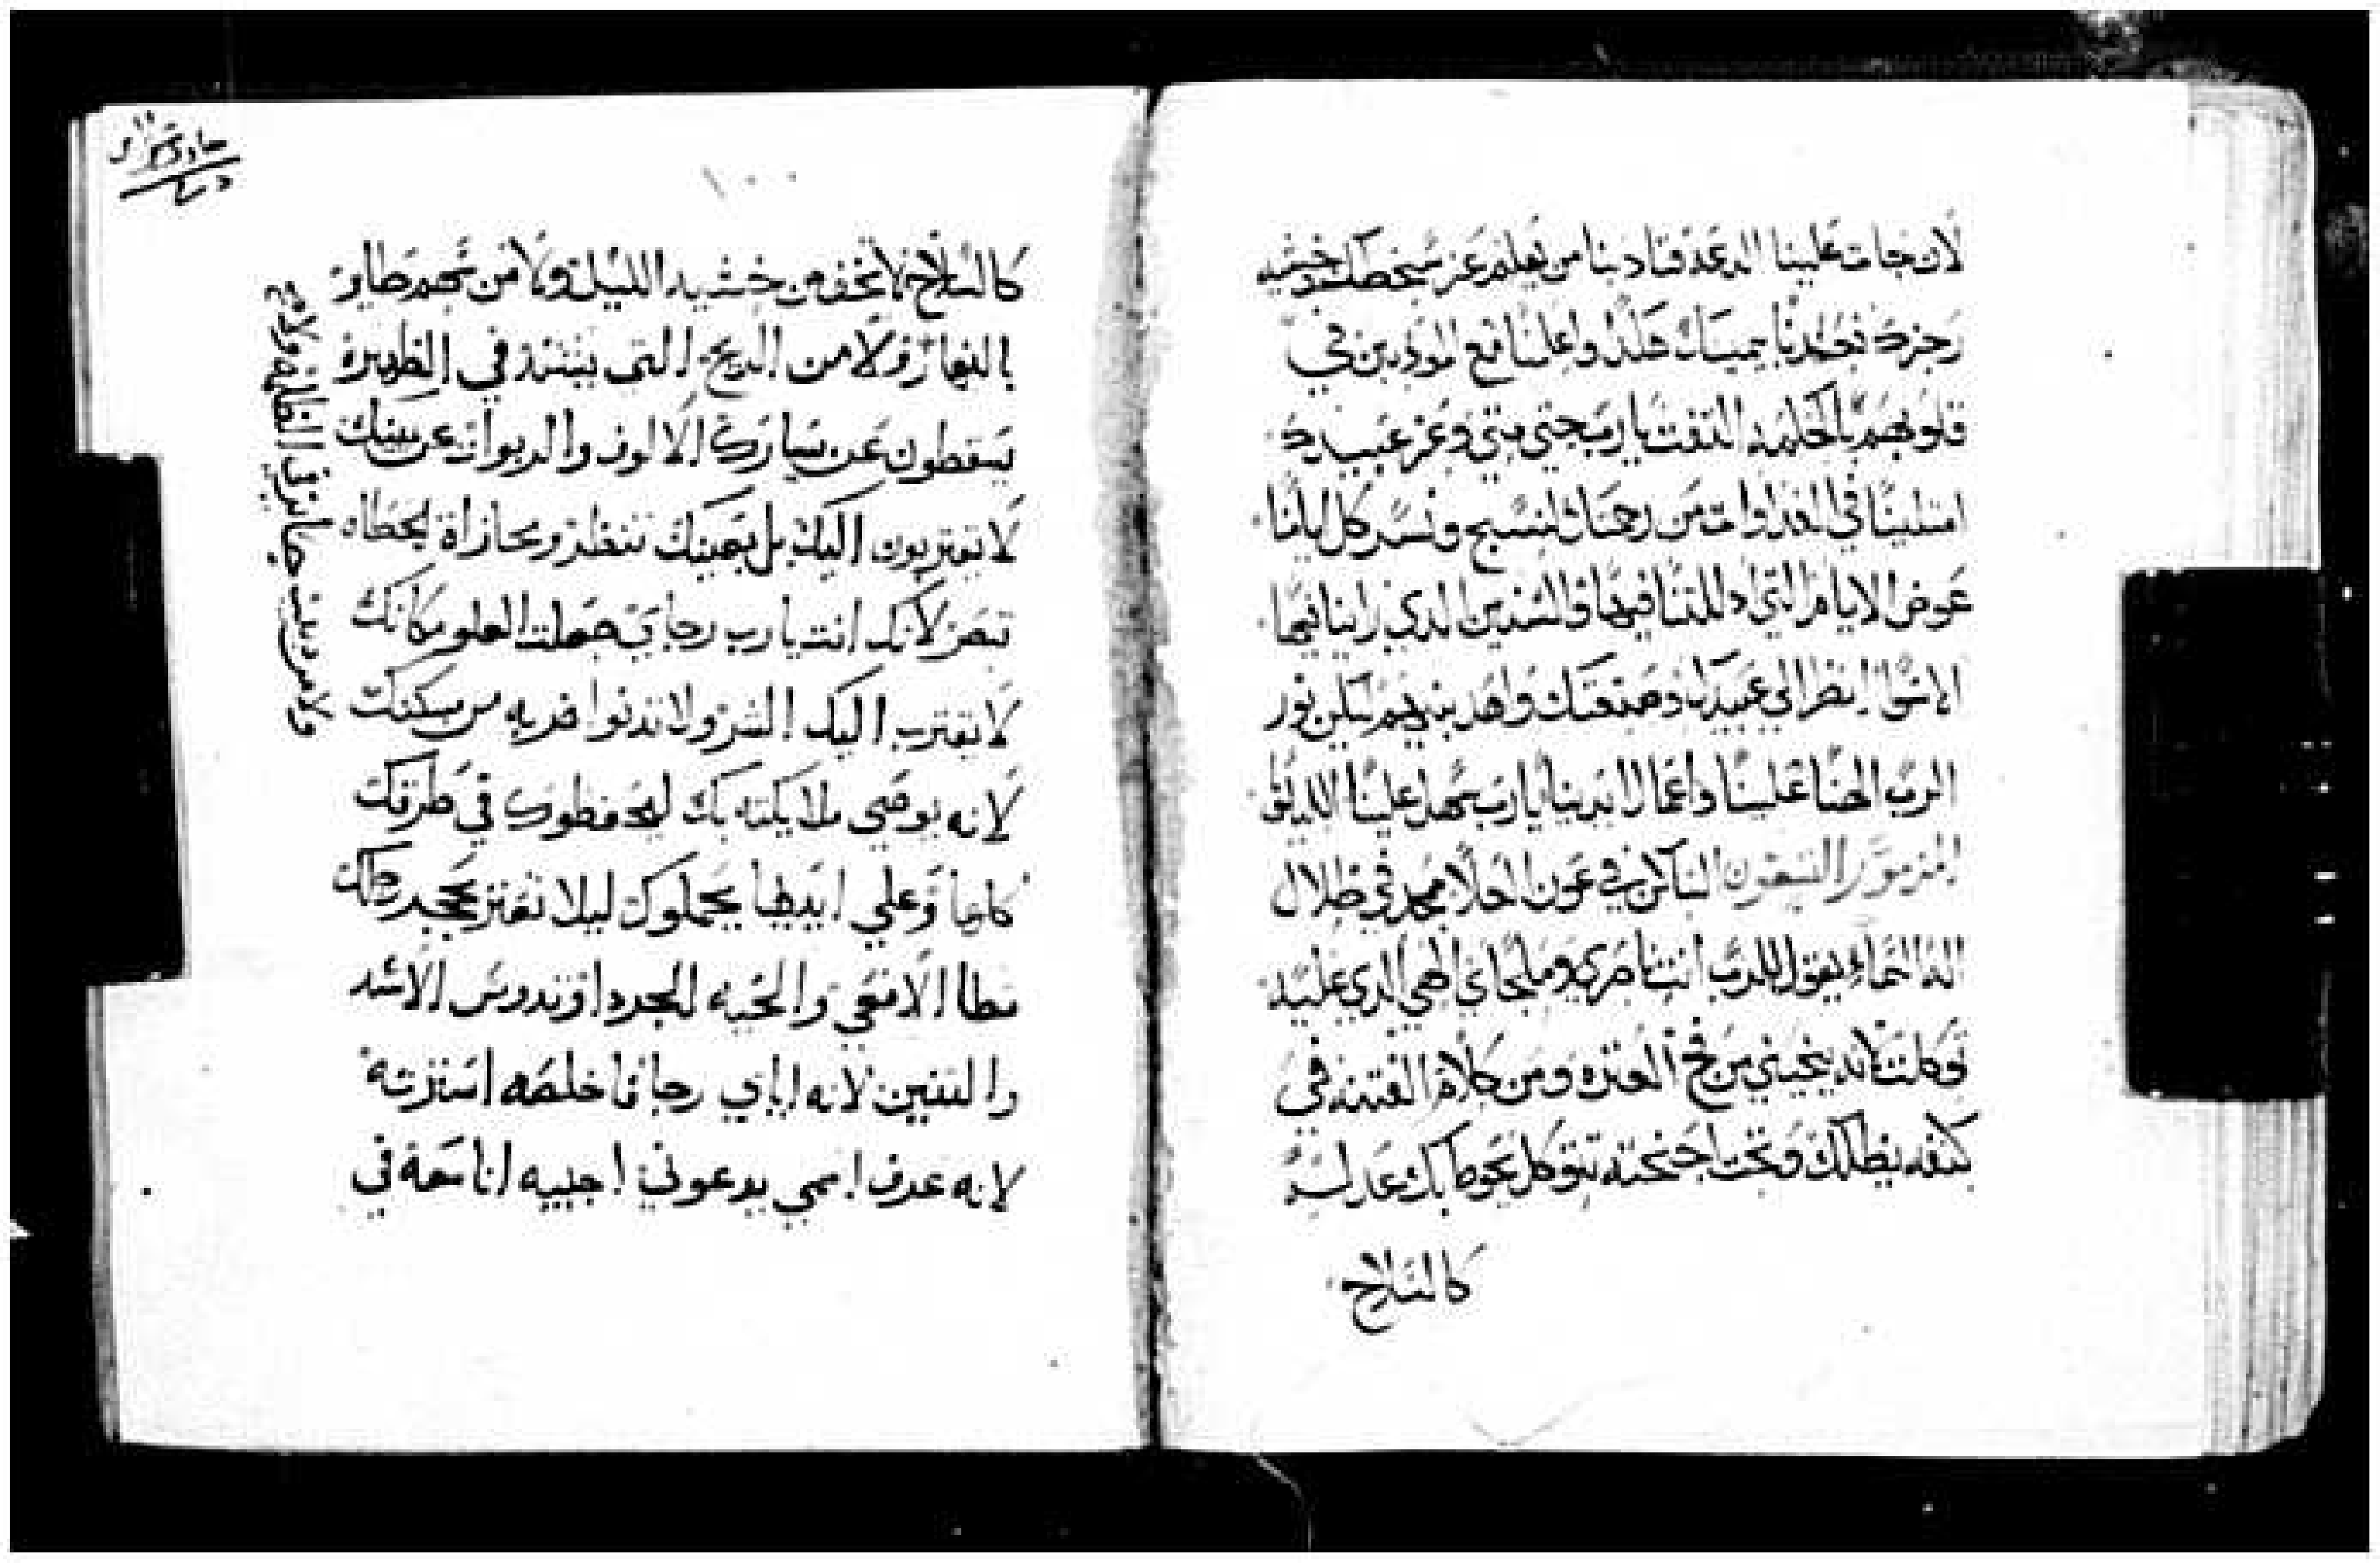 لان جات علينا الدعه فتادبنا من يعلم عز سخطك وخشيه
رجزك فعددنا يمينك هكذا واعلنا مع المودبين في
قلوبهم بالحكمه التفت يارب حتي متي وعز عبيدك
امتلينا في الغداوات من رحمتك لنسبح ونسر كل ايامنا
عوض الايام التي اذللتنا فيها والسنين الذي راينا فيها
الاسوا انظر الي عبيدك وصنعتك واهد بنيهم ليكن نور
الرب الهنا علينا واعمال ايدينا يارب سهل علينا
المزمور التسعون الساكن في عون العلا محمد في ظلال
اله السماء يقول للرب انت ناصري وملجاي الهي الذي عليه
توكلت لانه ينجيني من فخ العثره ومن كلام الفتنه في
كنفه يظلك وتحت اجنحته تتوكل يحوط بك عدله
كالسلاح
١٠٠
كالسلاح فلا تخف من خشيه الليل ولا من سهم طاير
بالنهار ولا من الريح التي تشتد في الظهيرة
يسقطون عن يسارك الالوف والربوات عن يمينك
لا يقتربون اليك بل بعينك تنظر ومجازاة الخطاه
تبصر لانك انت يارب رجاي جعلت العلو مكانك
لا يقترب اليك الشر ولا تدنوا ضربه من مسكنك
لانه يوصي ملايكته بك ليحفظوك في طرقك
كلها وعلي ايديها يحملوك ليلا تعثر بحجر رجلك
تطا الافعي والحيه الجرد وتدوس الاسد
والتنين لانه اياي رجا فاخلصه استرته
لانه عرف اسمي يدعوني اجيبه انا معه في
ولا من